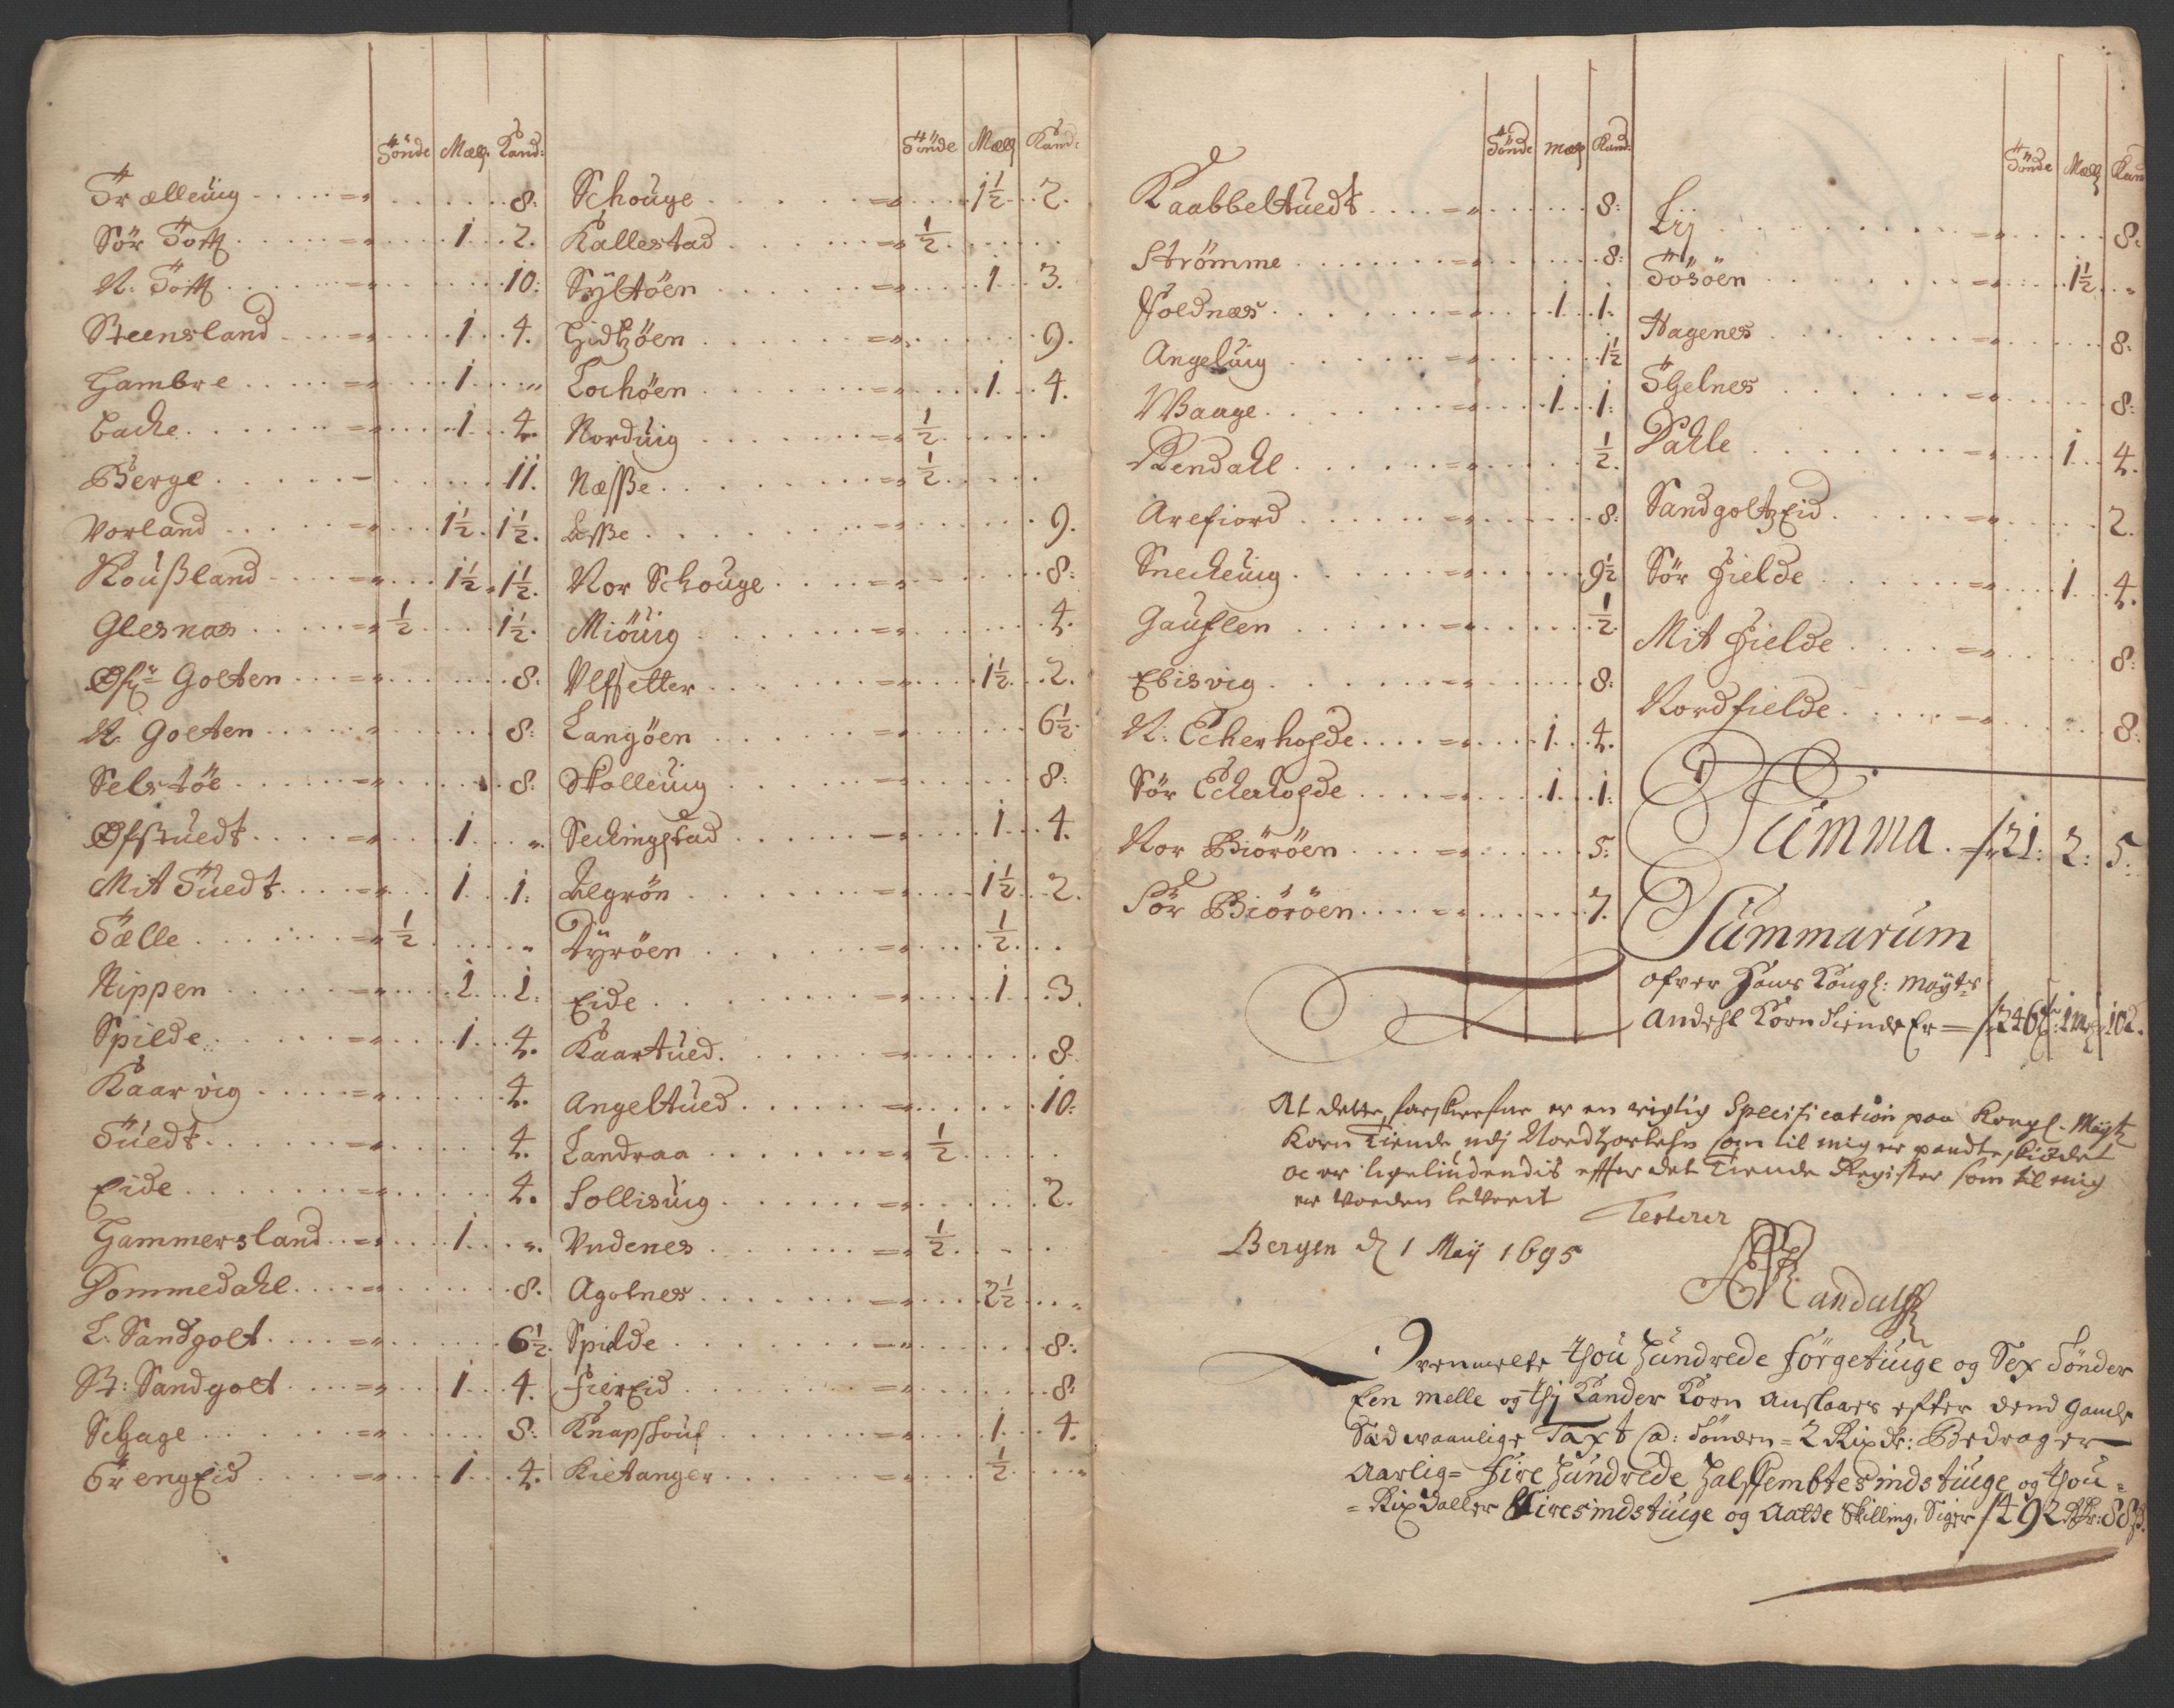 Tönde Mæll. Kand:
Trælleuig - - - - =" . . . . . 8:
Sör Toftt . . . . =" . . . 1 . . 2.
N. Tofft . . . . =" . . . . . 10:
Steensland . . . =" . . . 1 . . 4.
Hambre . . . . =" . . . 1 . . "
Backe . . . . . =" . . . 1 . . 4.
Berge . . . . . - . . . . . 11.
Vorland . . . . =" . . . 1½ . 1½.
Kousland . . . =" . . . 1½ . 1½.
Glesnæs . . . . =" ½ . . . 1½.
Goeten . . . =" . . . . . 8:
N. Goeten . . . . " . . . . . 8:
Selstöe . . . . =" . . . . . 8:
Ofstuedt . . . . =" . . . 1 . . "
Mit Tuedt . . . . =" . . . 1 . . 1:
Tælle . . . . . =" ½ . . . . "
Kippen . . . . =" . . . 1 . . 1:
Spilde . . . . . =" . . . 1 . . 4.
Kaarvig . . . . =" . . . . . 4.
Tuedt . . . . . =" . . . . . 4.
Eide . . . . . . =" . . . . . 4.
Hammersland . . =" . . . 1 . . "
Dommedahl . . . =" . . . . . 8.
L. Sandgolt . . . =" . . . . . 6½.
St: Sandgoet . . . =" . . . 1 . . 4.
Schage . . . . . =" . . . . . 8:
TrengEid . . . . =" . . . 1 . . 4.
Tönde Mæll Kand:
Schouge . . . . . =" . . . 1½ . . 2.
Kallestad . . . . =" ½ . . . .
Syltöen . . . . . =" . . . 1 . . 3.
Hidtzöen . . . . =" . . . . . 9.
Lochöen . . . . =" . . . 1 . . 4.
Norduig . . . . =" ½ . . . .
Næsse . . . . . =" ½ . . . .
Lesse . . . . . =" . . . . . 9.
Nor Schouge . . . =" . . . . . 8:
Miöuig . . . . . =" . . . . . 4.
Ulfsetter . . . . =" . . . 1½ . . 2.
Langöen . . . . . =" . . . . . 6½.
Skolleuig . . . . =" . . . . . 8:
Seckingstad . . . — . . . 1 . . 4.
Algrön . . . . . =" . . . 1½ . . 2.
Dyröen . . . . . =" . . . ½ . . .
Eide . . . . . . =" . . . 1 . . 3.
Kaartued . . . . =" . . . . . 8.
Angeltued . . . . =" . . . . . 10:
Landraa . . . . =" ½ . . . .
Sollisuig . . . . =" . . . . . 2.
Vndenes . . . . =" ½ . . . .
Agotnes . . . . =" . . . 2½ . . "
Spilde . . . . . =" . . . . . 8:
FierEid . . . . . =" . . . . . 8:
Knapskouf . . . . =" . . . 1 . . 4.
Kietanger . . . . =" . . . ½ . . "
Tönde mæll Kand:
Kaabbeltuedt . . . =" . . . . . 8:
Strömme . . . . =" . . . . . 8:
Foldnæs . . . . . =" . . . 1 . . 1:
Angeluig . . . . =" . . . . . 1½
Waage . . . . . =" . . . 1 . . 1:
Bendahl . . . . . =" . . . . . ½.
Arefiord . . . . =" . . . . . 8:
Sneckeuig . . . . =" . . . . . 9½
Gauflen . . . . . =" . . . . . ½.
Ebisvig . . . . . =" . . . . . 8:
N: Eckerhofde . . . =" . . . 1 . . 4.
Sör Eckerhofde . . . =" . . . 1 . . 1:
Nor Biöröen . . . =" . . . . . 5:
Sör Biöröen . . . =" . . . . . 7.
Tönde Mæll Kan
Lij . . . . . . =" . . . . . 8:
Tösöen . . . . . =" . . . 1½ . . "
Hagenes . . . . . =" . . . . . 8:
Tgelnes . . . . . =" . . . . . 8:
Dahle . . . . . =" . . . 1 . . 4.
SandgoltzEid . . . =" . . . . . 2.
Sör Fielde . . . . =" . . . 1 . . 4.
Mit Fielde . . . . =" . . . . . 8:
Nordfielde . . . . =" . . . . . 8:
Summa . = 21: 2: 5:
Summarum
ofver Hans Kongl: Mayts
Andehl Korn tiende Er = 246 t: 1 m: 10 k.
At dette forskrefne er en rigtig Specification paa Kongl. Mayts
Korn Tiende udj Nordhorlehn som til mig er pandteskiödet
oc er ligeliudendis effter det Tiende Register som til mig
er worden leverit Testerer
Bergen d 1 Maij 1695
Randulff
Ovenmelte thou Hundrede förgetiuge og Sex Tönder
Een melle og thj Kander Korn Anslaaes efter dend gamle
Sædwaanlige Taxt @: Tönden = 2 Rixdr: Bedrager
Aarlig= Fire Hundrede Halffembtesindstiuge og thou =
= Rixdaller Firesindstiuge og Aatte Skilling, Siger 492 Rdr: 88 s.